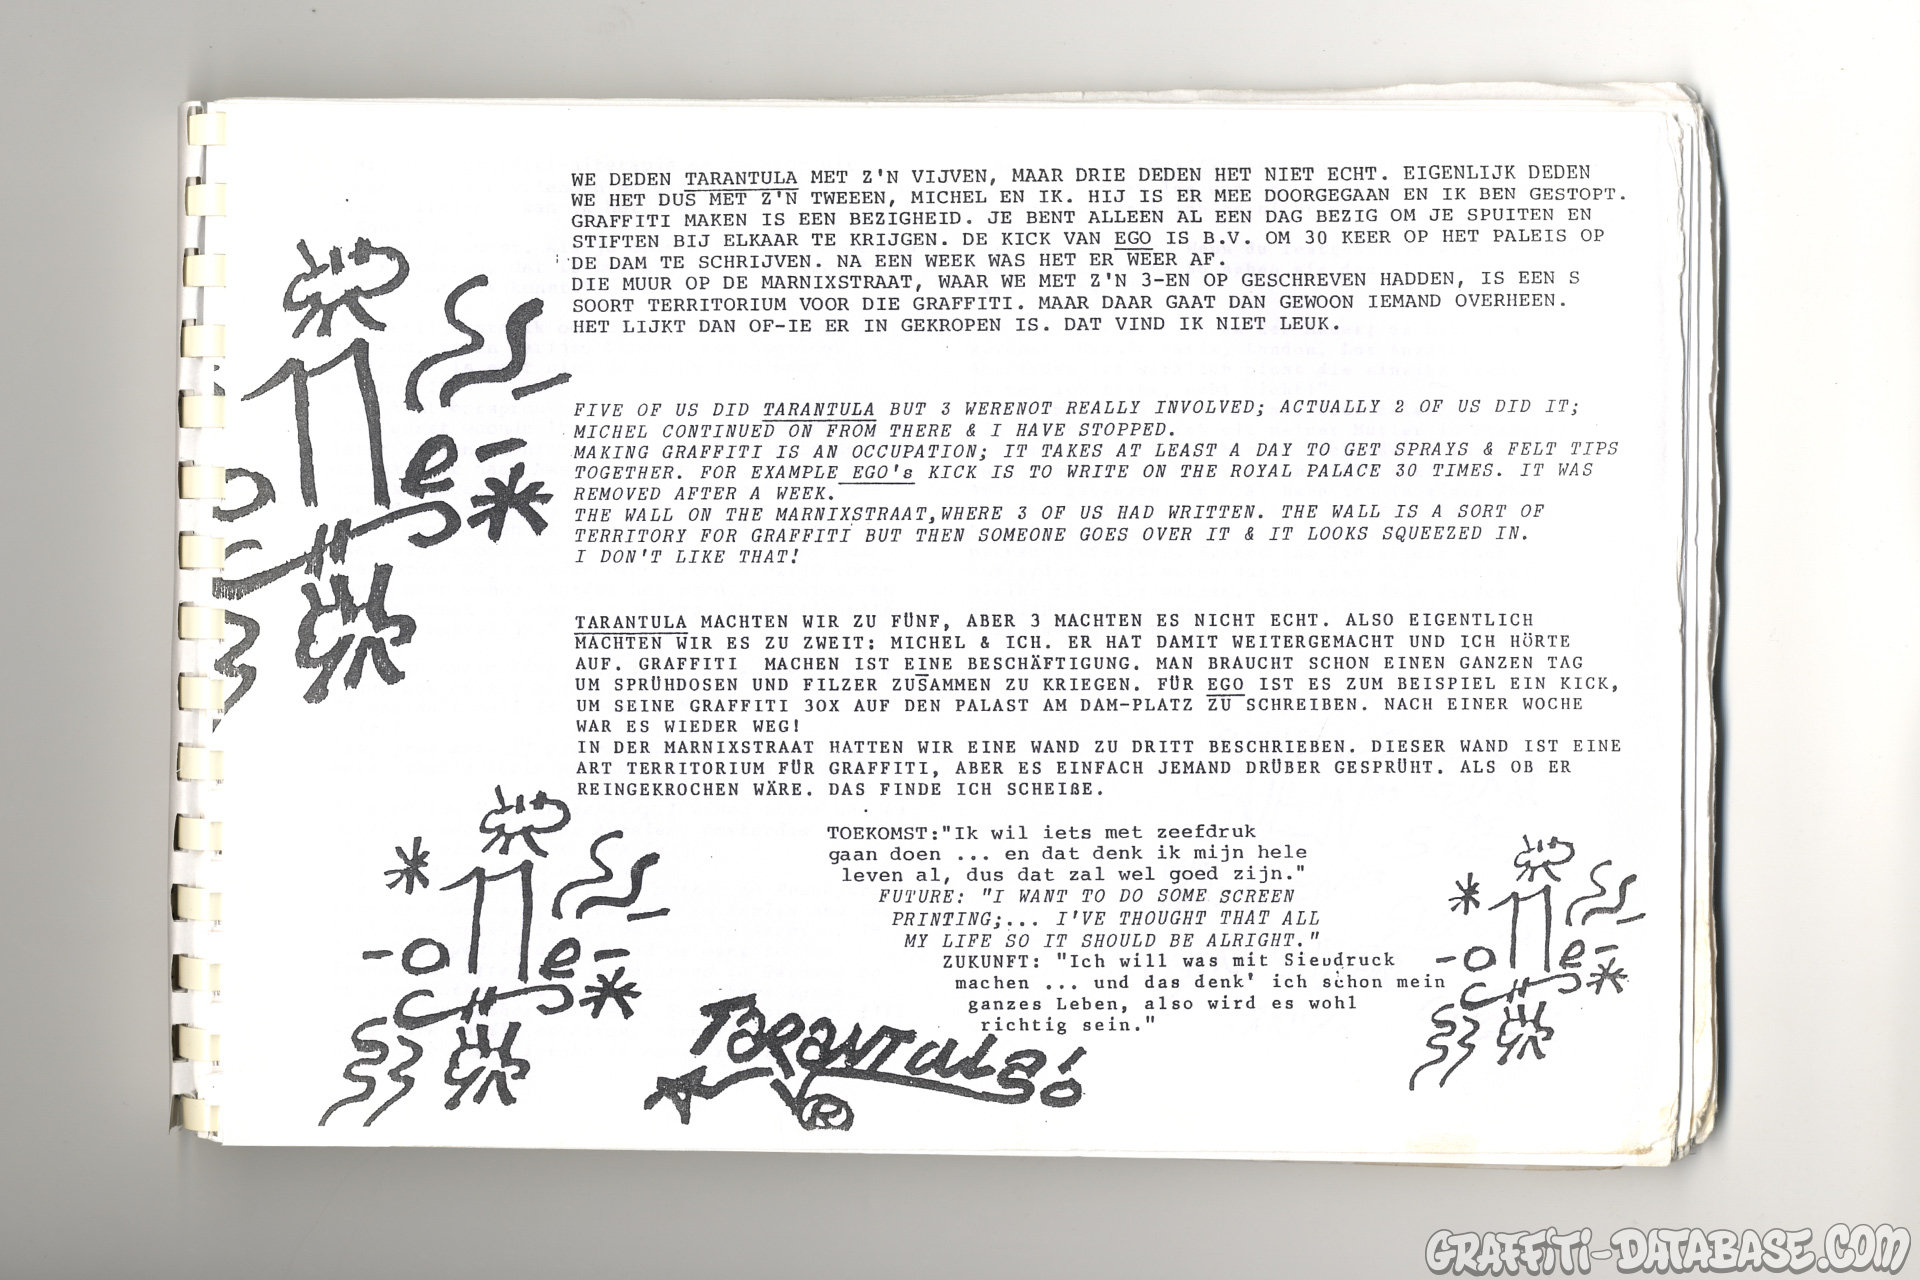 WE DEDEN TARANTULA MET Z'N VIJVEN, MAAR DRIE DEDEN HET NIET ECHT. EIGENLIJK DEDEN
WE HET DUS MET Z'N TWEEEN, MICHEL EN IK. HIJ IS ER MEE DOORGEGAAN EN IK BEN GESTOPT.
GRAFFITI MAKEN IS EEN BEZIGHEID. JE BENT ALLEEN AL EEN DAG BEZIG OM JE SPUITEN EN
STIFTEN BIJ ELKAAR TE KRIJGEN. DE KICK VAN EGO IS B.V. OM 30 KEER OP HET PALEIS OP
DE DAM TE SCHRIJVEN. NA EEN WEEK WAS HET ER WEER AF.
DIE MUUR OP DE MARNIXSTRAAT, WAAR WE MET Z'N 3-EN OP GESCHREVEN HADDEN, IS EEN S
SOORT TERRITORIUM VOOR DIE GRAFFITI. MAAR DAAR GAAT DAN GEWOON IEMAND OVERHEEN.
HET LIJKT DAN OF-IE ER IN GEKROPEN IS. DAT VIND IK NIET LEUK.
FIVE OF US DID TARANTULA BUT 3 WERENOT REALLY INVOLVED; ACTUALLY 2 OF US DID IT;
MICHEL CONTINUED ON FROM THERE & I HAVE STOPPED.
MAKING GRAFFITI IS AN OCCUPATION; IT TAKES AT LEAST A DAY TO GET SPRAYS & FELT TIPS
TOGETHER. FOR EXAMPLE EGO's KICK IS TO WRITE ON THE ROYAL PALACE 30 TIMES. IT WAS
REMOVED AFTER A WEEK.
THE WALL ON THE MARNIXSTRAAT,WHERE 3 OF US HAD WRITTEN. THE WALL IS A SORT OF
TERRITORY FOR GRAFFITI BUT THEN SOMEONE GOES OVER IT & IT LOOKS SQUEEZED IN.
I DON'T LIKE THAT!
TARANTULA MACHTEN WIR ZU FÜNF, ABER 3 MACHTEN ES NICHT ECHT. ALSO EIGENTLICH
MACHTEN WIR ES ZU ZWEIT: MICHEL & ICH. ER HAT DAMIT WEITERGEMACHT UND ICH HÖRTE
AUF. GRAFFITI MACHEN IST EINE BESCHÄFTIGUNG. MAN BRAUCHT SCHON EINEN GANZEN TAG
UM SPRÜHDOSEN UND FILZER ZUSAMMEN ZU KRIEGEN. FÜR EGO IST ES ZUM BEISPIEL EIN KICK,
UM SEINE GRAFFITI 30X AUF DEN PALAST AM DAM-PLATZ ZU SCHREIBEN. NACH EINER WOCHE
WAR ES WIEDER WEG!
IN DER MARNIXSTRAAT HATTEN WIR EINE WAND ZU DRITT BESCHRIEBEN. DIESER WAND IST EINE
ART TERRITORIUM FÜR GRAFFITI, ABER ES EINFACH JEMAND DRÜBER GESPRÜHT. ALS OB ER
REINGEKROCHEN WÄRE. DAS FINDE ICH SCHEIßE.
TOEKOMST:"Ik wil iets met zeefdruk
gaan doen ... en dat denk ik mijn hele
leven al, dus dat zal wel goed zijn."
FUTURE: "I WANT TO DO SOME SCREEN
PRINTING;... I'VE THOUGHT THAT ALL
MY LIFE SO IT SHOULD BE ALRIGHT."
ZUKUNFT: "Ich will was mit Siebdruck
machen ... und das denk' ich schon mein
ganzes Leben, also wird es wohl
richtig sein."
TARANTULA
GRAFFITI-DATABASE.COM